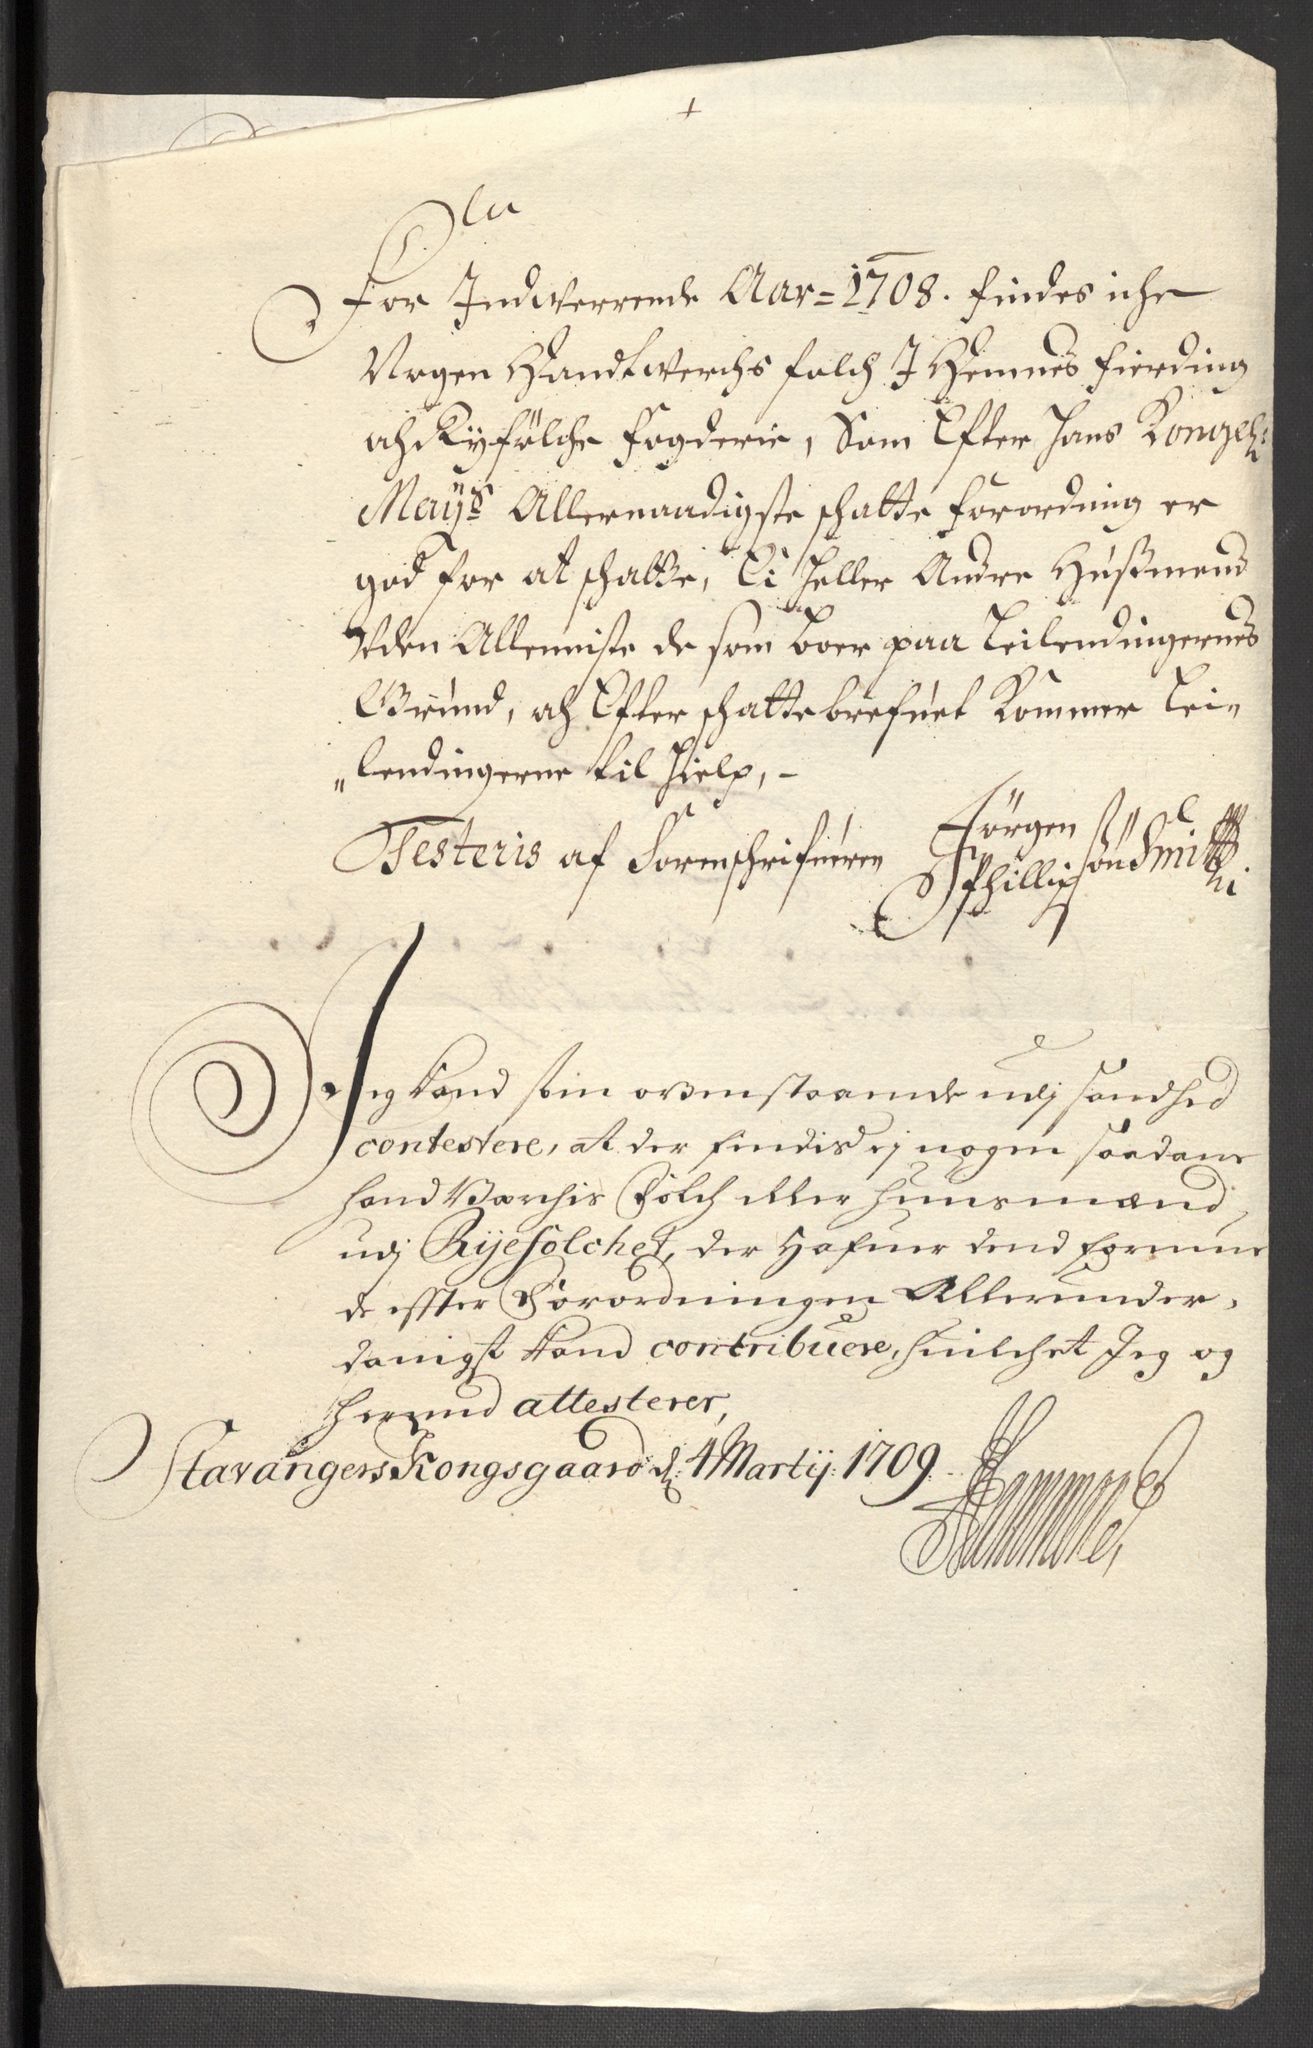 For Indwerrende Aar=1708. findes iche
Nogen Handtwerchs folch I Hemnes fierding
och Ryfölche fogderie, Som Efter hans Kongel:
Mayts Allernaadigste schatte forordning er
god for at schatte, Ei heller Andre Hussmend
Uden Alleeniste de som boer paa Leilendingernes
Grund, och Efter schattebrefuet kommer Lei-
"lendingerne til hielp, -
Testeris af Sorenschrifueren Jörgen
Phillipsön Smitt
Jeg kand som ovenstaaende udj sandhed
contestere, at der findis ej nogen saadane
hand Verchis Folch eller huusmænd
udj Ryefölchet, der Hafuer dend formue
de effter Forordningen Allerunder-
danigst kand contribuere, huilchet Jeg og
herved attesterer,
Stavangers Kongsgaard d: 4 Martij: 1709